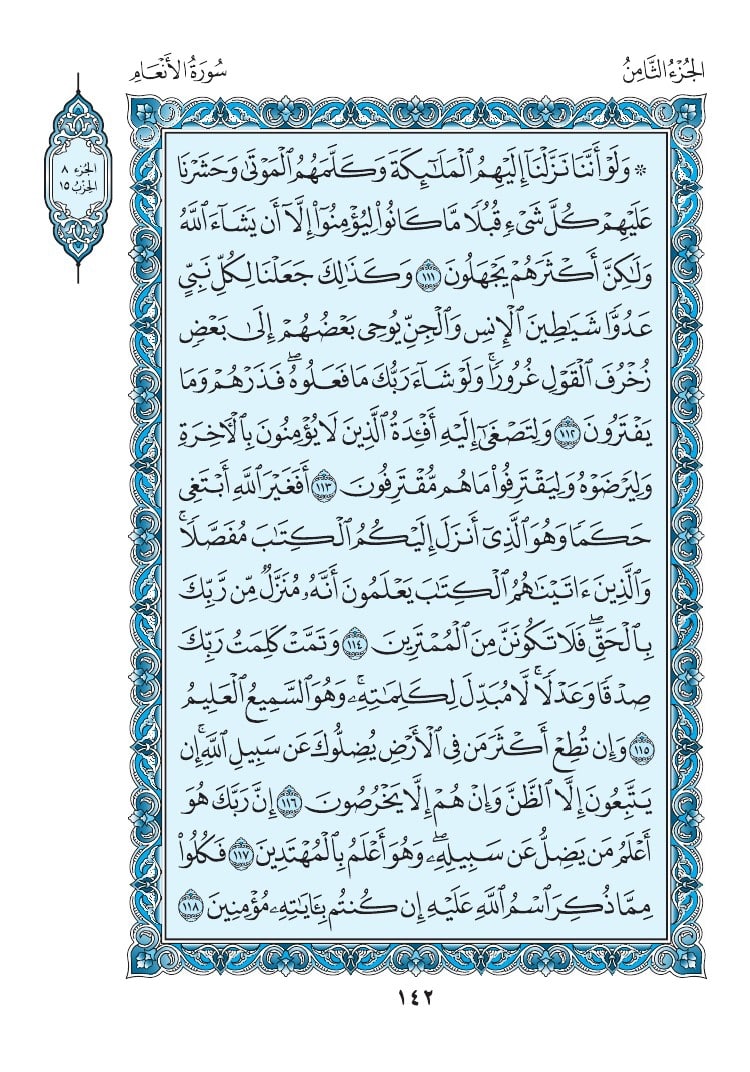 الجُزْءُ الثَّامِنُ
سُورَةُ الأَنْعَامِ
الجزء ٨
الحزب ١٥
۞ وَلَوْ أَنَّنَا نَزَّلْنَآ إِلَيْهِمُ ٱلْمَلَٰٓئِكَةَ وَكَلَّمَهُمُ ٱلْمَوْتَىٰ وَحَشَرْنَا
عَلَيْهِمْ كُلَّ شَىْءٍ قُبُلًا مَّا كَانُوا۟ لِيُؤْمِنُوٓا۟ إِلَّآ أَن يَشَآءَ ٱللَّهُ
وَلَٰكِنَّ أَكْثَرَهُمْ يَجْهَلُونَ ١١١ وَكَذَٰلِكَ جَعَلْنَا لِكُلِّ نَبِىٍّ
عَدُوًّا شَيَٰطِينَ ٱلْإِنسِ وَٱلْجِنِّ يُوحِى بَعْضُهُمْ إِلَىٰ بَعْضٍ
زُخْرُفَ ٱلْقَوْلِ غُرُورًا ۚ وَلَوْ شَآءَ رَبُّكَ مَا فَعَلُوهُ ۖ فَذَرْهُمْ وَمَا
يَفْتَرُونَ ١١٢ وَلِتَصْغَىٰٓ إِلَيْهِ أَفْـِٔدَةُ ٱلَّذِينَ لَا يُؤْمِنُونَ بِٱلْـَٔاخِرَةِ
وَلِيَرْضَوْهُ وَلِيَقْتَرِفُوا۟ مَا هُم مُّقْتَرِفُونَ ١١٣ أَفَغَيْرَ ٱللَّهِ أَبْتَغِى
حَكَمًا وَهُوَ ٱلَّذِىٓ أَنزَلَ إِلَيْكُمُ ٱلْكِتَٰبَ مُفَصَّلًا ۚ
وَٱلَّذِينَ ءَاتَيْنَٰهُمُ ٱلْكِتَٰبَ يَعْلَمُونَ أَنَّهُۥ مُنَزَّلٌ مِّن رَّبِّكَ
بِٱلْحَقِّ ۖ فَلَا تَكُونَنَّ مِنَ ٱلْمُمْتَرِينَ ١١٤ وَتَمَّتْ كَلِمَتُ رَبِّكَ
صِدْقًا وَعَدْلًا ۚ لَّا مُبَدِّلَ لِكَلِمَٰتِهِۦ ۚ وَهُوَ ٱلسَّمِيعُ ٱلْعَلِيمُ
١١٥ وَإِن تُطِعْ أَكْثَرَ مَن فِى ٱلْأَرْضِ يُضِلُّوكَ عَن سَبِيلِ ٱللَّهِ ۚ إِن
يَتَّبِعُونَ إِلَّا ٱلظَّنَّ وَإِنْ هُمْ إِلَّا يَخْرُصُونَ ١١٦ إِنَّ رَبَّكَ هُوَ
أَعْلَمُ مَن يَضِلُّ عَن سَبِيلِهِۦ ۖ وَهُوَ أَعْلَمُ بِٱلْمُهْتَدِينَ ١١٧ فَكُلُوا۟
مِمَّا ذُكِرَ ٱسْمُ ٱللَّهِ عَلَيْهِ إِن كُنتُم بِـَٔايَٰتِهِۦ مُؤْمِنِينَ ١١٨
١٤٢